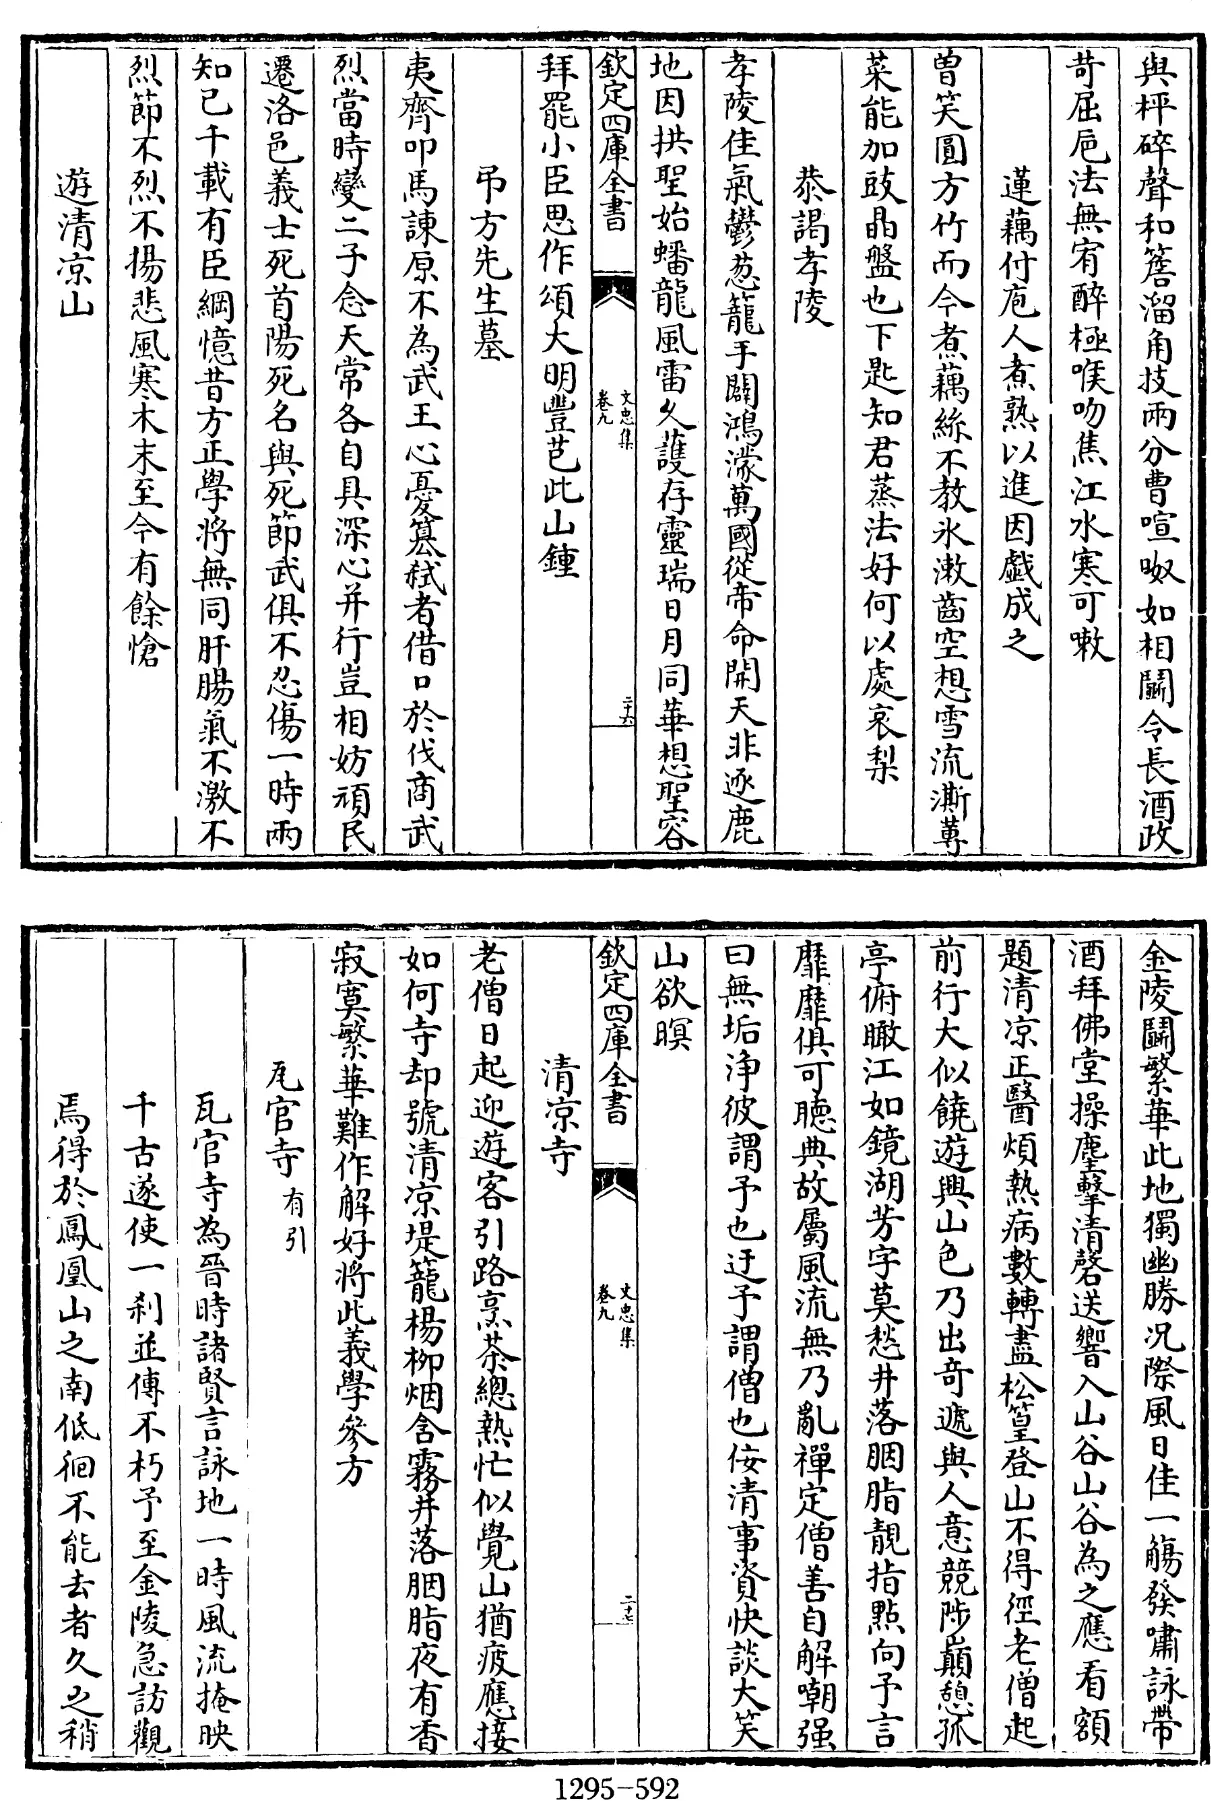 與枰碎聲和簷溜角技兩分曹喧呶如相鬬令長酒政
苛屈巵法無宥醉極喉吻焦江水寒可嗽
蓮藕付庖人煮熟以進因戱成之
曾笑圓方竹而今煮藕絲不教氷漱齒空想雪流澌蓴
菜能加豉晶盤也下匙知君蒸法好何以處哀梨
恭謁孝陵
孝陵佳氣鬱葱籠手闢鴻濛萬國從帝命開天非逐鹿
地因拱聖始蟠龍風雷久護存靈瑞日月同華想聖容
欽定四庫全書
文忠集
卷九
二十六
拜罷小臣思作頌大明豐芑此山鍾
弔方先生墓
夷齊叩馬諫原不為武王心憂簒弒者借口於伐商武
烈當時變二子念天常各自具深心并行豈相妨頑民
遷洛邑義士死首陽死名與死節武俱不忍傷一時兩
知己千載有臣綱憶昔方正學將無同肝腸氣不激不
烈節不烈不揚悲風寒木末至今有餘愴
遊清凉山
金陵鬬繁華此地獨幽勝况際風日佳一觴發嘯詠帶
酒拜佛堂操麈擊清磬送響入山谷山谷為之應看額
題清凉正醫煩熱病數轉盡松篁登山不得徑老僧起
前行大似饒遊興山色乃出奇遞與人意競陟巔憩孤
亭俯瞰江如鏡湖芳字莫愁井落胭脂靚指點向予言
靡靡俱可聽典故屬風流無乃亂禪定僧善自解嘲强
曰無垢淨彼謂予也迂予謂僧也佞清事資快談大笑
山欲暝
欽定四庫全書
文忠集
卷九
二十七
清凉寺
老僧日起迎遊客引路烹茶總熱忙似覺山猶疲應接
如何寺却號清凉堤籠楊柳烟含霧井落胭脂夜有香
寂寞繁華難作解好將此義學參方
瓦官寺有引
瓦官寺為晉時諸賢言詠地一時風流掩映
千古遂使一刹並傳不朽予至金陵急訪觀
焉得於鳳凰山之南低徊不能去者久之稍
1295-592